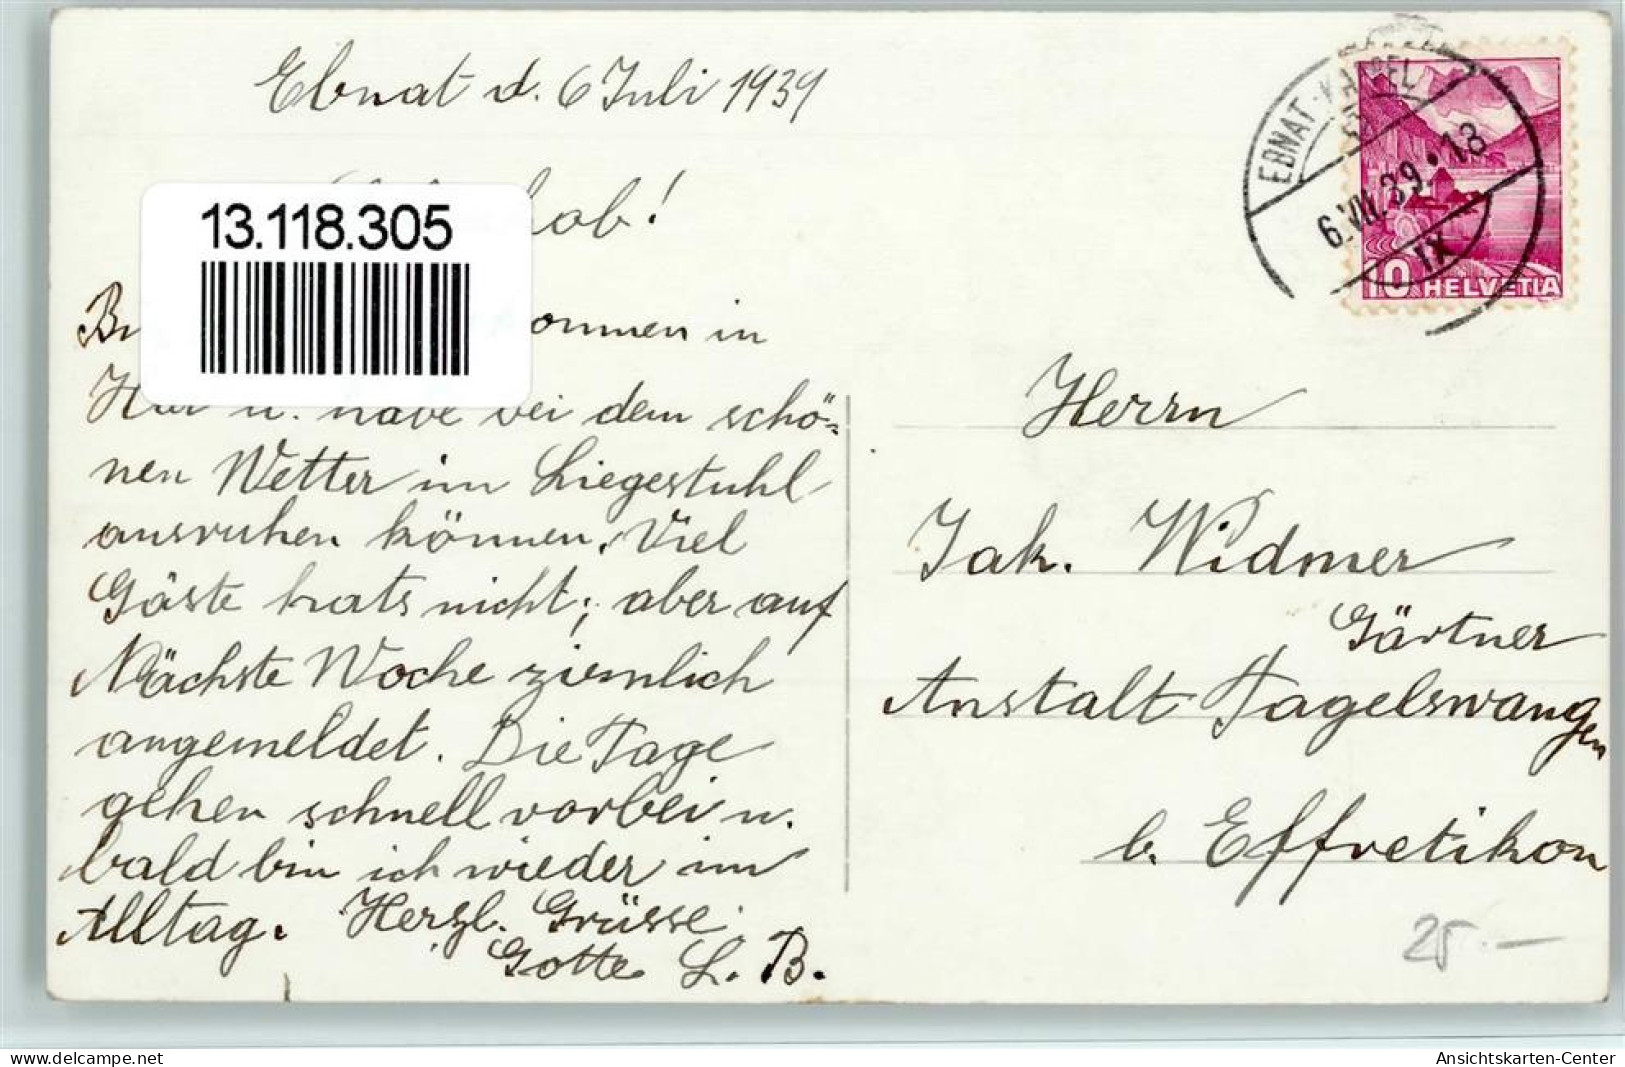 Ebnat d. 6 Juli 1939
13.118.305
ommen in
u. habe bei dem schö-
nen Wetter im Liegestuhl
ausruhen können. Viel
Gäste hats nicht; aber auf
Nächste Woche ziemlich
angemeldet. Die Tage
gehen schnell vorbei u.
bald bin ich wieder im
Alltag. Herzl. Grüsse
Gotte L. B.
EBNAT-KAPPEL
6.VII.39.-18
IX
10 HELVETIA
Herrn
Jak. Widmer
Gärtner
Anstalt Tagelswangen
b. Effretikon
25.-
www.delcampe.net
Ansichtskarten-Center